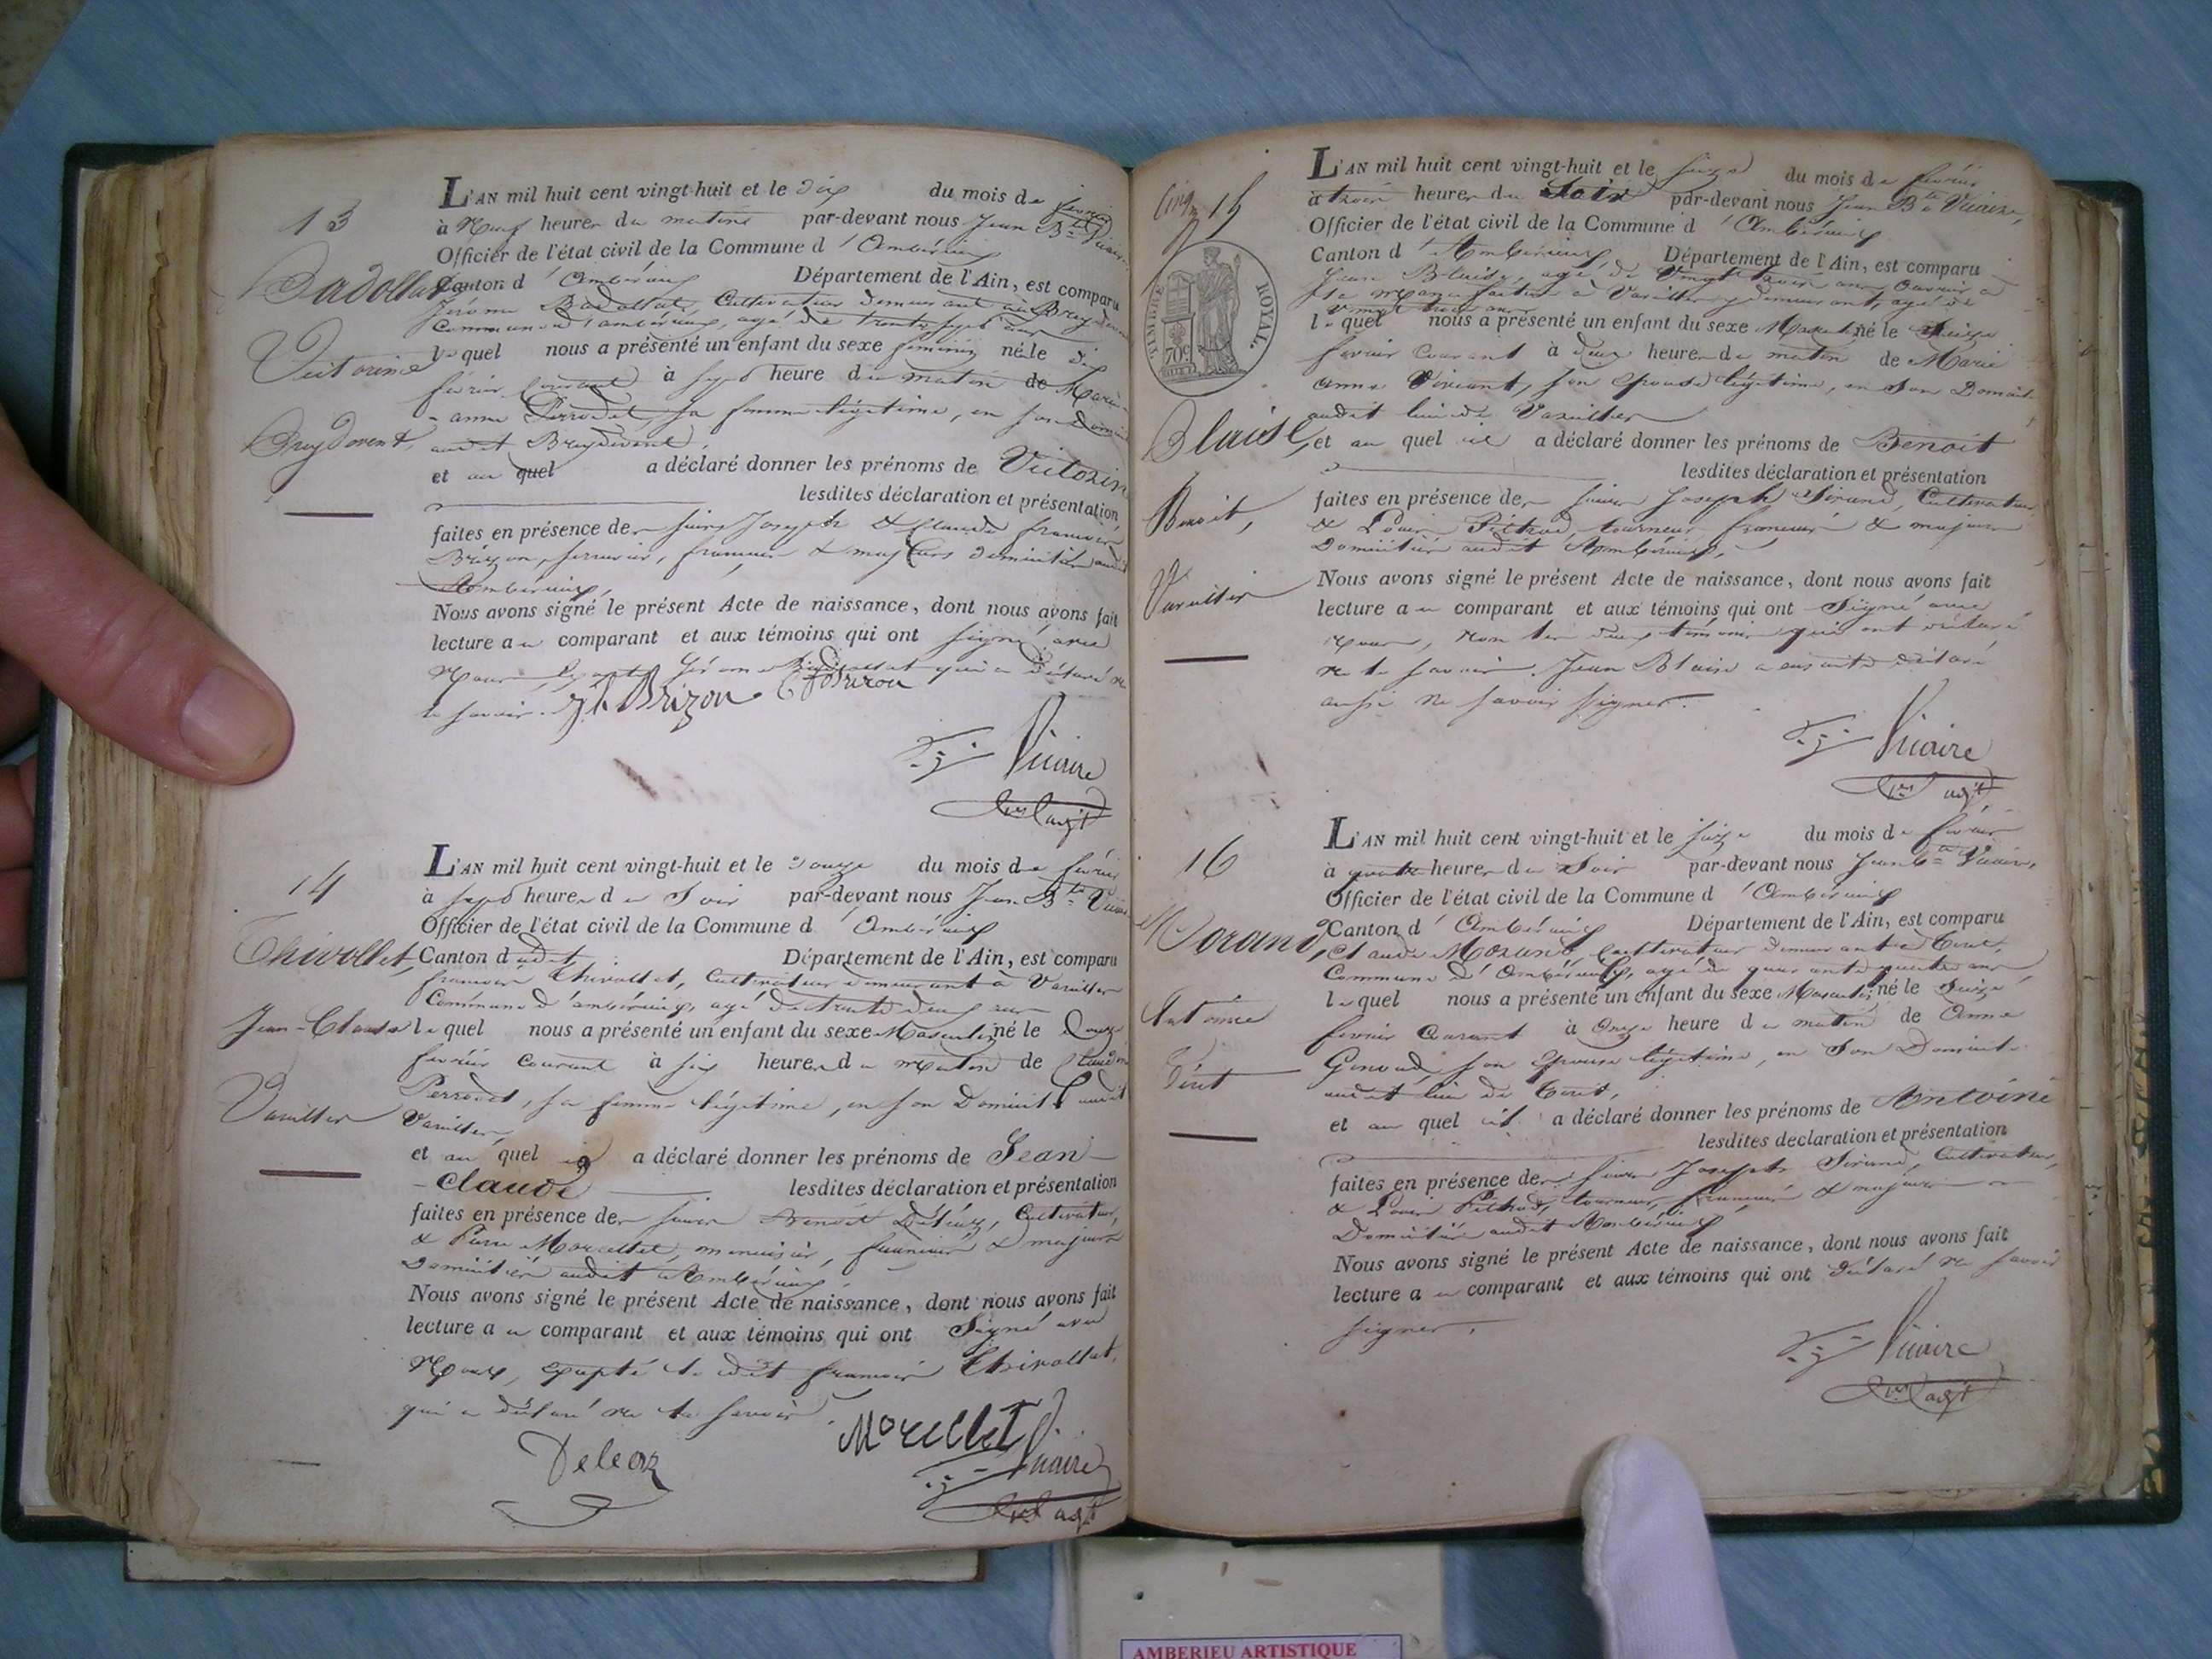 13
Badollat
Victorine
Breydevent,
L'AN mil huit cent vingt-huit et le dix du mois de février
à Neuf heures du matin par-devant nous Jean Bte Vicaire
Officier de l'état civil de la Commune d'Ambérieux
Canton d'Ambérieux Département de l'Ain, est comparu
Jérome Badollat, Cultivateur demeurant à Breydevent
Commune d'ambérieux, agé de trente sept ans
lequel nous a présenté un enfant du sexe feminin né le dix
février Courant à sept heure du matin de Marie
-anne Perrodet, sa femme légitime, en son Domicile
audit Breydevent,
et au quel a déclaré donner les prénoms de Victorine
lesdites déclaration et présentation
faites en présence des sieurs Joseph & Claude francois
Brizon, serrurier, francais & majeurs domiciliés audit
Ambérieux,
Nous avons signé le présent Acte de naissance, dont nous avons fait
lecture au comparant et aux témoins qui ont signé avec
Nous, excepté Jérome Badollat qui a déclaré ne
le savoir. Jh Brizon C f Brizon
Vicaire
adjt
14
Thivollet,
Jean-Claude
Vareilles
L'AN mil huit cent vingt-huit et le douze du mois de février
à sept heures du Soir par-devant nous Jean Bte Vicaire
Officier de l'état civil de la Commune d'Ambérieux
Canton dudit Département de l'Ain, est comparu
francois Thivollet, Cultivateur demeurant à Vareilles
Commune d'ambérieux, agé de trente deux ans
lequel nous a présenté un enfant du sexe Masculin né le Douze
février courant à six heures du matin de Claudine
Perrodet, sa femme légitime, en son Domicile audit
Vareilles,
et au quel il a déclaré donner les prénoms de Jean-
-Claude lesdites déclaration et présentation
faites en présence des sieurs Benoit Déléaz, Cultivateur,
& Pierre Morellet, menuisier, francais & majeurs
Domiciliés audit Ambérieux,
Nous avons signé le présent Acte de naissance, dont nous avons fait
lecture au comparant et aux témoins qui ont Signé avec
Nous, excepté le dit francois Thivollet,
qui a déclaré ne le savoir.
Morellet
Deleaz
Vicaire
adjt
15
TIMBRE ROYAL.
Blaise,
Benoit,
Vareilles
L'AN mil huit cent vingt-huit et le seize du mois de février
à trois heures du Soir par-devant nous Jean Bte Vicaire,
Officier de l'état civil de la Commune d'Ambérieux
Canton d'Ambérieux Département de l'Ain, est comparu
Jean Blaise, agé de vingt trois ans ouvrier à
la manufacture à Vareilles y demeurant, agé de
vingt trois ans
lequel nous a présenté un enfant du sexe Masculin né le Seize
fevrier Courant à deux heures du matin de Marie
anne Vincent, son Epouse légitime, en son Domicile
audit lieu de Vareilles
et au quel il a déclaré donner les prénoms de Benoit
lesdites déclaration et présentation
faites en présence des sieurs Joseph Sirand, Cultivateur
& Louis Pelrud, tourneur, francais & majeurs
Domiciliés audit Ambérieux,
Nous avons signé le présent Acte de naissance, dont nous avons fait
lecture au comparant et aux témoins qui ont Signé avec
Nous, non les deux témoins qui ont déclaré
ne le savoir. Jean Blaise a ensuite déclaré
aussi ne savoir signer.
Vicaire
adjt
16
Morand,
Antoine
Tiret
L'AN mil huit cent vingt-huit et le seize du mois de février
à quatre heures du Soir par-devant nous Jean Bte Vicaire,
Officier de l'état civil de la Commune d'Ambérieux
Canton d'Ambérieux Département de l'Ain, est comparu
Claude Morand, Cultivateur demeurant à Tiret,
Commune d'Ambérieux, agé de quarante quatre ans
lequel nous a présenté un enfant du sexe Masculin né le Seize
fevrier Courant à Onze heure du matin de Anne
Genoud, son Epouse légitime, en Son Domicile
audit lieu de Tiret,
et au quel il a déclaré donner les prénoms de Antoine
lesdites déclaration et présentation
faites en présence des sieurs Joseph Sirand, Cultivateur,
& Louis Pelrud, tourneur, francais & majeurs
Domiciliés audit Ambérieux
Nous avons signé le présent Acte de naissance, dont nous avons fait
lecture au comparant et aux témoins qui ont déclaré ne savoir
signer.
Vicaire
adjt
AMBERIEU ARTISTIQUE